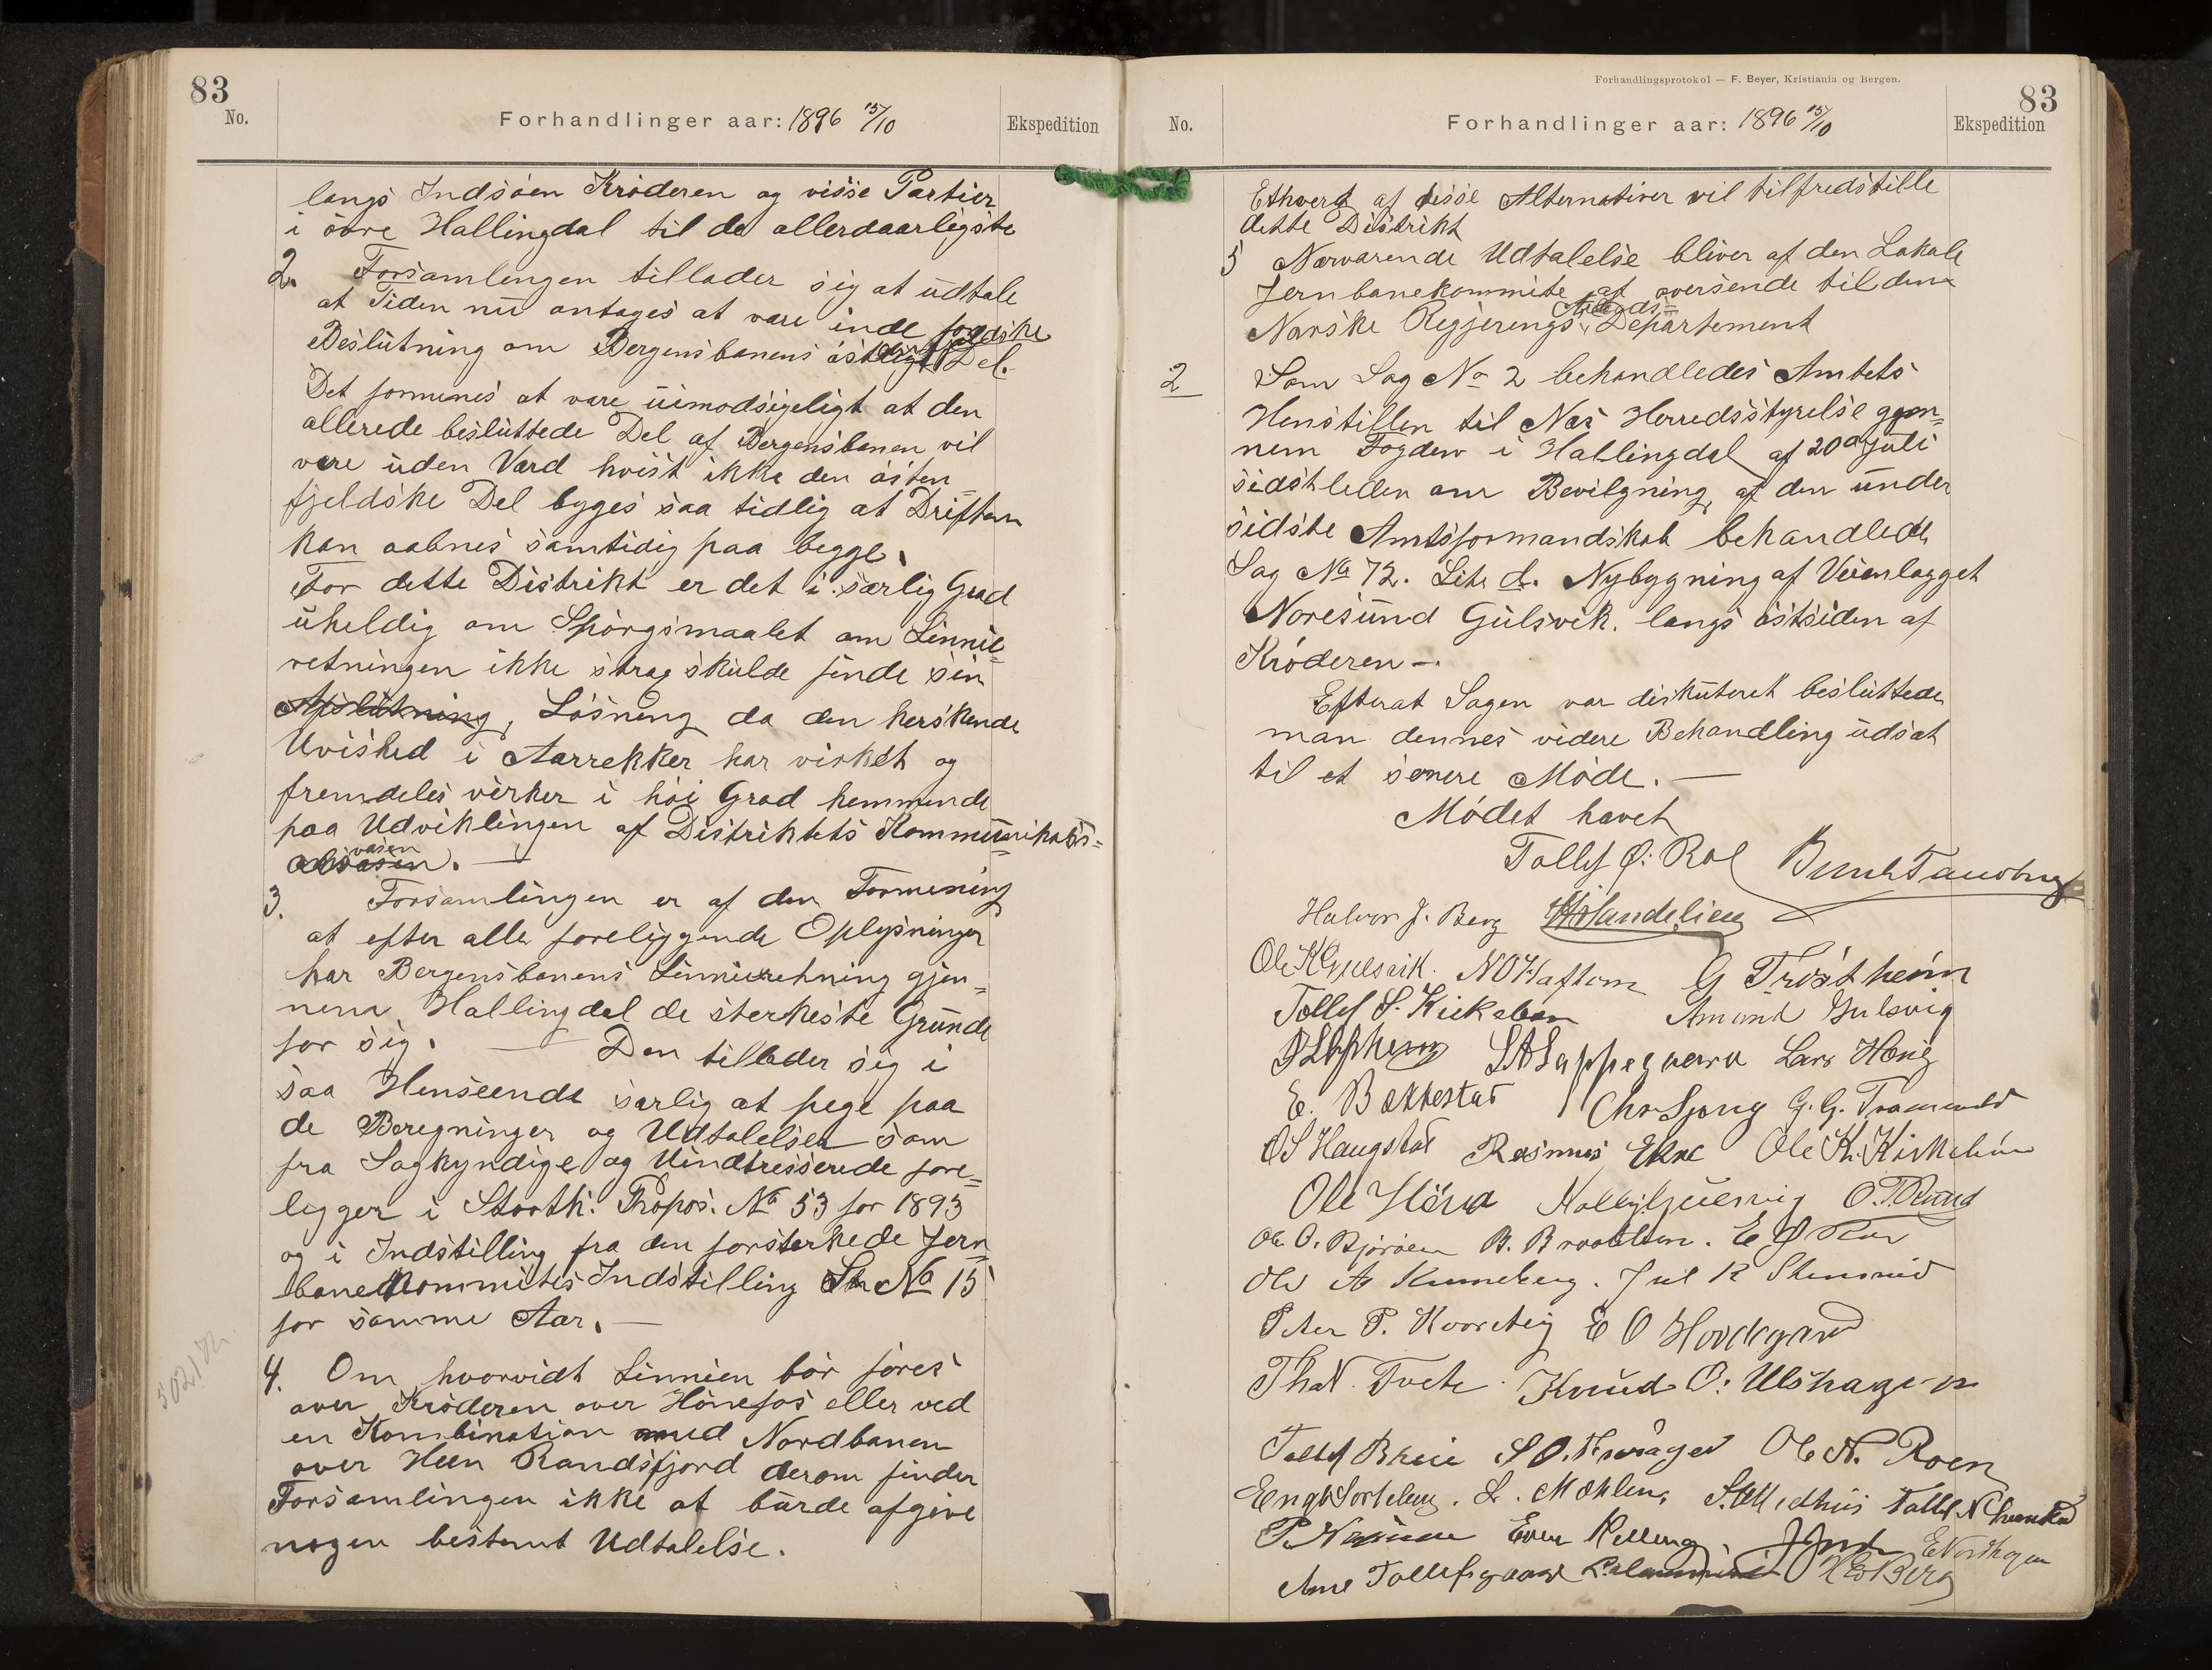 83
No.
Forhandlinger aar: 1896 15/10
Ekspedition
langs Indsøen Krøderen og visse Partier
i øvre Hallingdal til de allerdaarligste
2. Forsamlingen tillader sig at udtale
at Tiden nu antages at være inde for
Beslutning om Bergensbanens østenfjeldske Del.
Det formenes at være uimodsigeligt at den
allerede besluttede Del af Bergensbanen vil
være uden Værd hvist ikke den østen=
fjeldske Del byges saa tidlig at Driften
kan aabnes samtidig paa begge.
For dette Distrikt er det i særlig Grad
uheldig om Spørgsmaalet om Linnie=
retningen ikke strag skulde finde sin
Afslutning, Løsning da den herskende
Uvished i Aarrekker har virket og
fremdeles virker i høi Grad hemmende
paa Udviklingen af Distriktets Kommunikations=
væsen. —
3. Forsamlingen er af den Formening
at efter alle foreliggende Oplysninger
har Bergensbanens Linnieretning gjen=
nem Hallingdal de sterkeste Grunde
for sig. — Den tillader sig i
saa Henseende særlig at pege paa
de Beregninger og Udtalelser som
fra Sagkyndige og Uindtresserede fore=
ligger i Storth. Propos. No 53 for 1893
og i Indstilling fra den forsterkede Jern=
banekommites Indstilling No 15
for samme Aar. —
4. Om hvorvidt Linnien bør føres
over Krøderen over Hønefos eller ved
en Kombination med Nordbanen
over Heen Randsfjord derom finder
Forsamlingen ikke at burde afgive
nogen bestemt Udtalelse.
5021
Forhandlingsprotokol — F. Beyer, Kristiania og Bergen.
83
No.
Forhandlinger aar: 1896 15/10
Ekspedition
Ethvert af disse Alternativer vil tilfredstille
dette Distrikt
5 Nærværende Udtalelse bliver af den Lokale
Jernbanekommite at oversende til den
Norske Regjerings Arbeids= Departement
2 Som Sag No 2 behandledes Amtets
Henstillen til Næs Herredsstyrelse gjen=
nem Fogden i Hallingdal af 20de Juli
sidstleden om Bevilgning af den under
sidste Amtsformandskab behandlede
Sag No 72. Litr d. Nybygning af Veianlægget
Noresund Gulsvik. langs østsiden af
Krøderen —.
Efterat Sagen var diskuteret besluttede
man dennes videre Behandling udsat
til et senere Møde. —
Mødet hævet
Tollef Ø. Roe
Halvor J. Berg
Ole K Gulsvik. N O Haftorn G Trøstheim
Tollef S. Kirkebøen Amund Gulsvig
Lars Høng
E. Bakkestad Chr Sjong G. G. Tramunld
O S Haugstad Rasmus Ekre Ole K. Kirkebøen
Ole Horva O. T. Rund
Ole O. Bjøroen B. Braathen. E Ø Roe
Ole A Kinneberg. Juel R Stensrud
Peter P. Kvarteig E O Hovdegard
Tha N. Tveto. Knud O. Ulshagen
Tollef Breie Ole A. Roen
L. Mæhlen
Even Kolleng E Nordhagen
Arne Tollefsgaard H E Berg